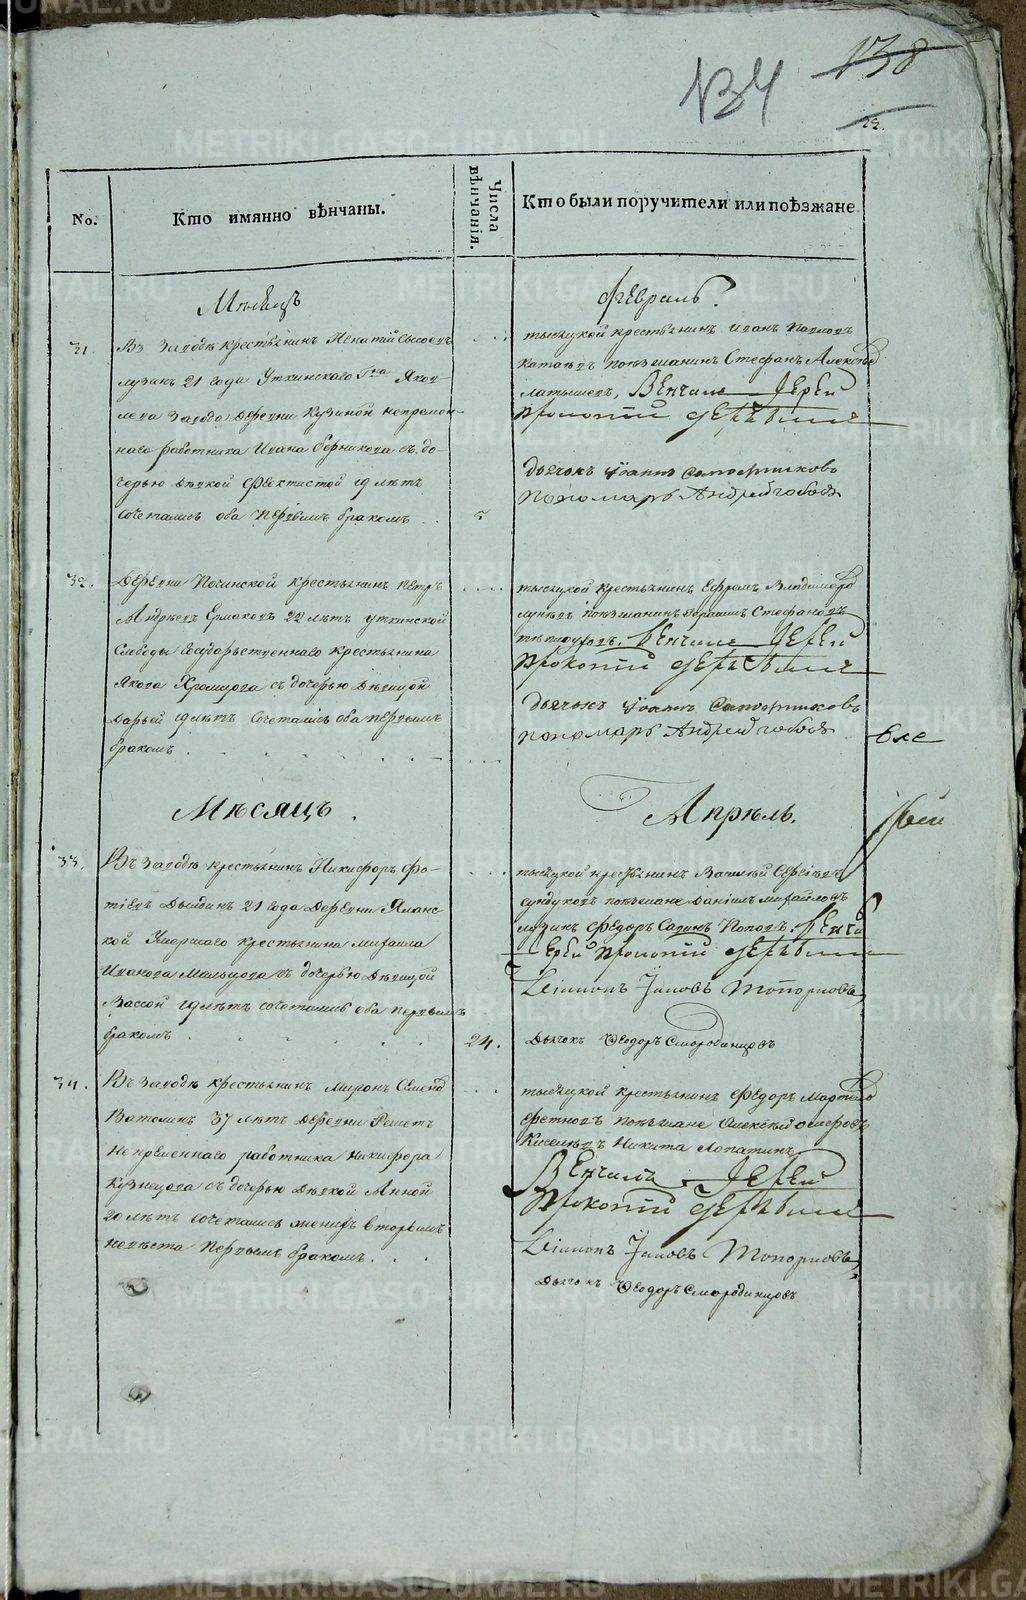 138
134
22.
No.
Кто имянно вѣнчаны.
Числа вѣнчанія.
Кто были поручители или поѣзжане
Мѣсяцъ
Февраль.
31
Въ Заводѣ крестьянинъ Игнатій Сысоевъ
лузинъ 21 года Уткинскаго Гна Яков
лева Завода деревни Кузиной непремѣн
наго работника Ивана Берникова съ до-
черью дѣвкой Фектистой 19 лѣтъ
сочетались оба первымъ бракомъ
5
тысяцкой крестьянинъ Иванъ Павловъ
катаевъ поѣзжанинъ Стефанъ Алексѣевъ
латышевъ. Вѣнчалъ Іерей
Прокопій
дьячокъ Іоаннъ Сапожниковъ
пономарь Андрей
32.
Деревни Починской крестьянинъ Петръ
Андреевъ Ермаковъ 22 лѣтъ уткинской
Слободы Государственнаго крестьянина
Якова Хромцова съ дочерью дѣвицой
Дарьей 19 лѣтъ сочетались оба первымъ
бракомъ
тысяцкой крестьянинъ Ефремъ Владимеровъ
поѣзжанинъ Стефановъ
Вѣнчалъ Іерей
Прокопій
дьячокъ Іоаннъ Сапожниковъ
пономарь Андрей
Мѣсяцъ.
Апрѣль.
33.
Въ Заводѣ крестьянинъ Никифоръ Фо-
тіевъ 21 года Деревни
кой Умершаго крестьянина Михаила
Иванова Мальцова съ дочерью дѣвицой
Вассой 19 лѣтъ сочетались оба первымъ
бракомъ
24.
тысяцкой крестьянинъ Василій
сундуковъ поѣзжане Даніилъ Михайловъ
лузинъ Федоръ Савинъ Поповъ. Вѣнча
Ерей Прокопій
Діаконъ Іаковъ Топорковъ
Дьячокъ Ѳеодоръ Смородинцовъ
34.
Въ Заводѣ крестьянинъ Миронъ Семенов
Ватолинъ 37 лѣтъ Деревни Решетъ
непремѣннаго работника Никифора
Кузнецова съ дочерью дѣвкой Анной
20 лѣтъ сочетались женихъ вторымъ
невѣста первымъ бракомъ.
тысяцкой крестьянинъ Федоръ
поѣзжане Алексѣй
Киселевъ Никита Лопатинъ
Вѣнчалъ Іерей
Прокопій
Діаконъ Іаковъ Топорковъ
Дьячокъ Ѳеодоръ Смородинцовъ
METRIKI.GASO-URAL.RU